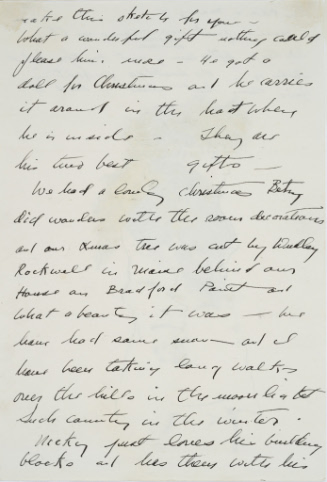 make this sketch for you –
What a wonderful gift nothing could
please him more – He got a
doll for Christmas and he carries
it around in the boat when
he is inside – They are
his two best gifts –
We had a lovely Christmas Betsy
did wonders with the room decorations
and our Xmas tree was cut by
Rockwell in Maine behind our
House on Bradford Point and
what a beauty it was – We
have had some snow and I
have been taking long walks
over the hills in the moonlight
Such country in the winter.
Nicky just loves his building
blocks and has them with his